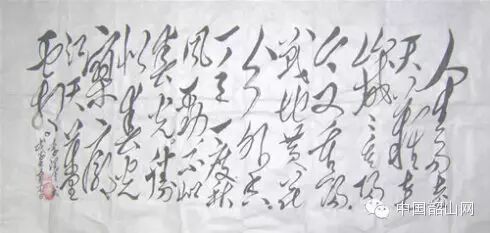 人生易老
天难老
岁岁重阳
今又重阳
战地黄花
分外香
一年一度秋
风劲不似
春光胜
似春光
寥廓
江天万里
霜
中国韶山网